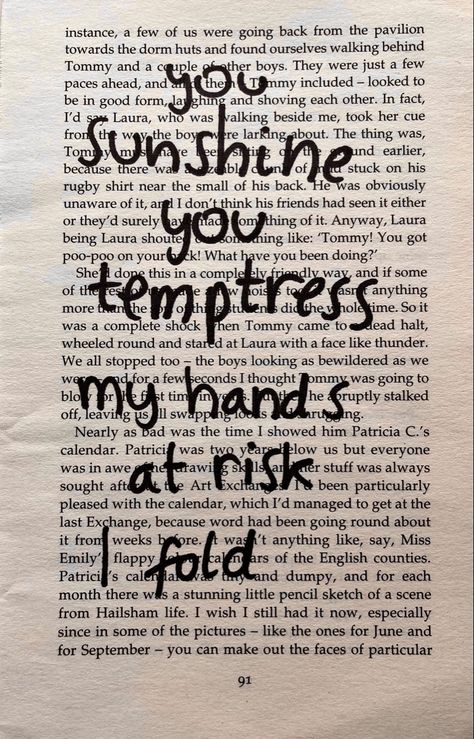 instance, a few of us were going back from the pavilion
towards the dorm huts and found ourselves walking behind
Tommy and a couple of other boys. They were just a few
paces ahead, and all Tommy included – looked to
you
be in good form, laughing and shoving each other. In fact,
I'd say Laura, who was walking beside me, took her cue
from the way the boys were larking about. The thing was,
sunshine
Tommy have been sitting on the ground earlier,
because there was a of mud stuck on his
rugby shirt near the small of his back. He was obviously
unaware of it, and I don't think his friends had seen it either
you
or they'd surely have made something of it. Anyway, Laura
being Laura shouted something like: 'Tommy! You got
poo-poo on your back! What have you been doing?'
She'd done this in a completely friendly way, and if some
of the rest noises too, wasn't anything
temptress
more than the sort of thing students did the whole time. So it
was a complete shock when Tommy came to a dead halt,
wheeled round and stared at Laura with a face like thunder.
We all stopped too – the boys looking as bewildered as we
were – and for a few seconds I thought Tommy was going to
my hands
blow for the first time in years. But then he abruptly stalked
off, leaving us all swapping looks and shrugging.
Nearly as bad was the time I showed him Patricia C.'s
calendar. Patricia was two years below us but everyone
was in awe of her drawing skills, and her stuff was always
at risk
sought after at the Art Exchanges. I'd been particularly
pleased with the calendar, which I'd managed to get at the
last Exchange, because word had been going round about
it from weeks before. It wasn't anything like, say, Miss
Emily's flappy calendars of the English counties.
I fold
Patricia's calendar was and dumpy, and for each
month there was a stunning little pencil sketch of a scene
from Hailsham life. I wish I still had it now, especially
since in some of the pictures – like the ones for June and
for September – you can make out the faces of particular
91